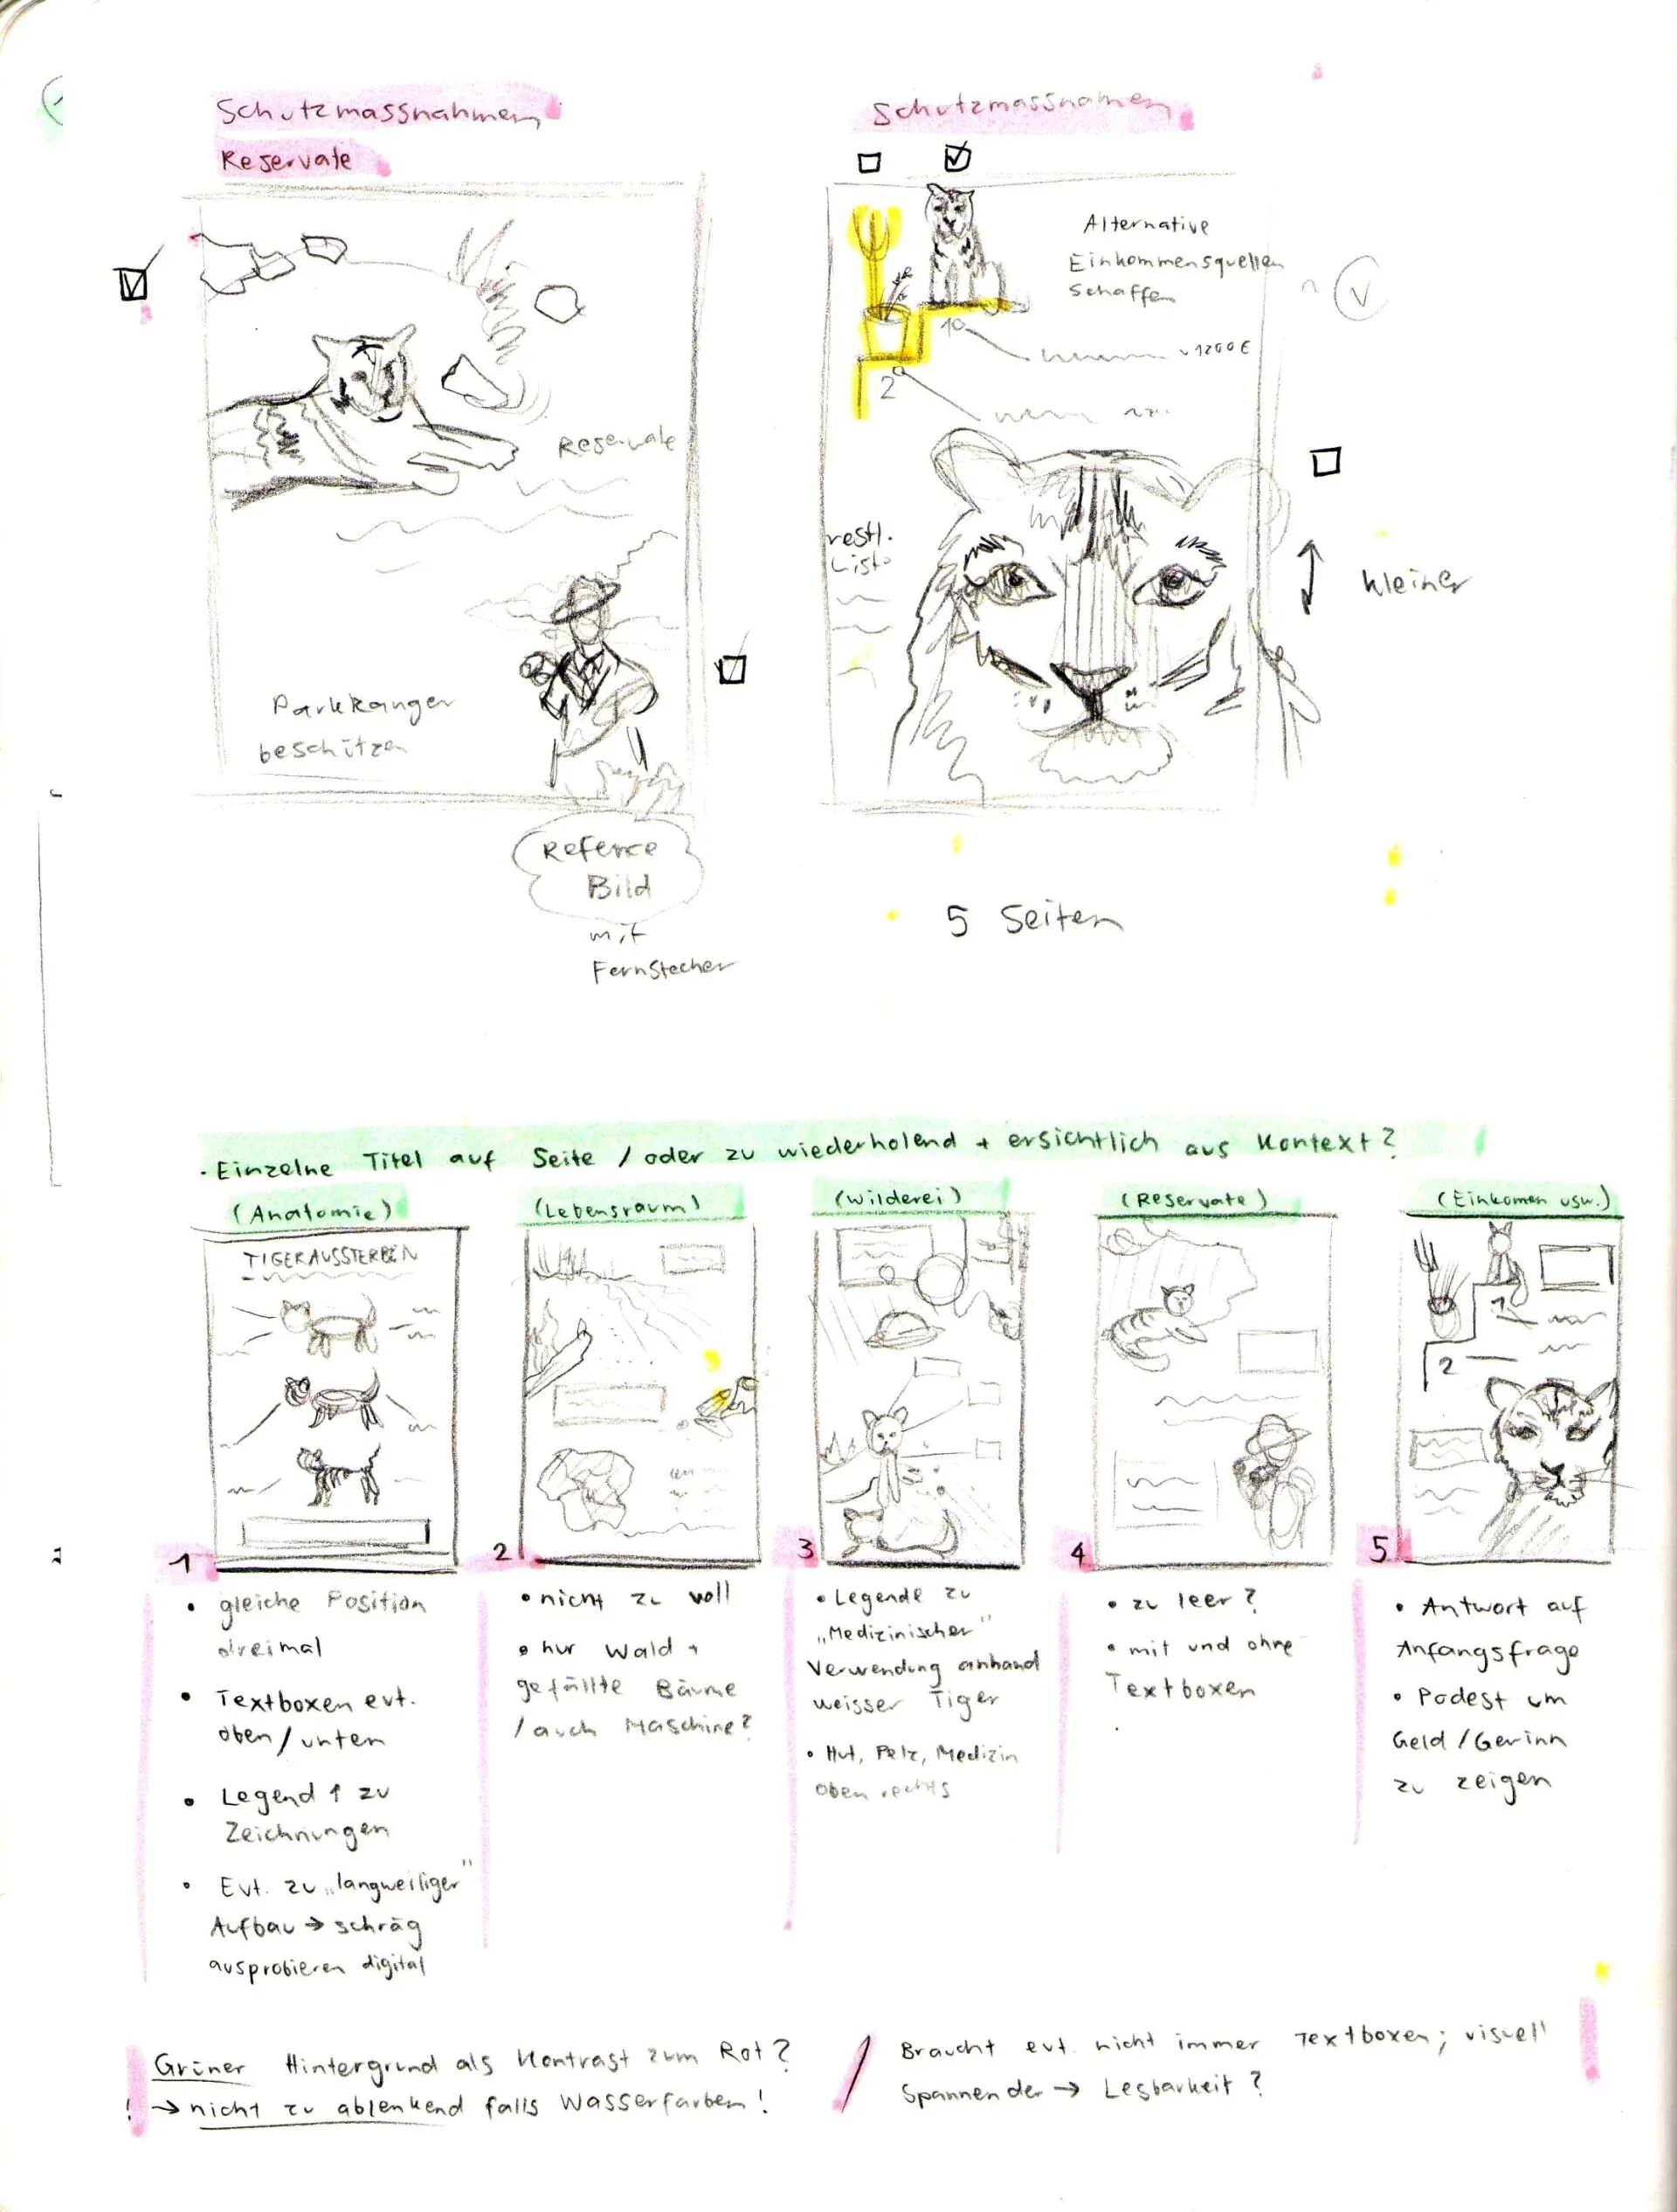 Schutzmassnahmen
Reservate
Reservate
Parkranger
beschützen
Refernce
Bild
mit
Fernstecher
Schutzmassnamen
Alternative
Einkommensquellen
schaffen
10
1200€
2
restl.
Liste
kleiner
5 Seiten
• Einzelne Titel auf Seite / oder zu wiederholend + ersichtlich aus Kontext?
(Anatomie)
TIGERAUSSTERBEN
1
• gleiche Position
dreimal
• Textboxen evt.
oben/unten
• Legend 1 zu
Zeichnungen
• Evt. zu „langweiliger"
Aufbau → schräg
ausprobieren digital
(Lebensraum)
2
• nicht zu voll
• nur Wald +
gefällte Bäume
/ auch Maschine?
(Wilderei)
3
• Legende zu
„Medizinischer"
Verwendung anhand
weisser Tiger
• Hut, Pelz, Medizin
oben rechts
(Reservate)
4
• zu leer?
• mit und ohne
Textboxen
(Einkomen usw.)
1
2
5
• Antwort auf
Anfangsfrage
• Podest um
Geld/Gerinn
zu zeigen
Grüner Hintergrund als Kontrast zum Rot?
! → nicht zu ablenkend falls Wasserfarben!
/ Braucht evt. nicht immer Textboxen; visuell
spannender → Lesbarkeit?